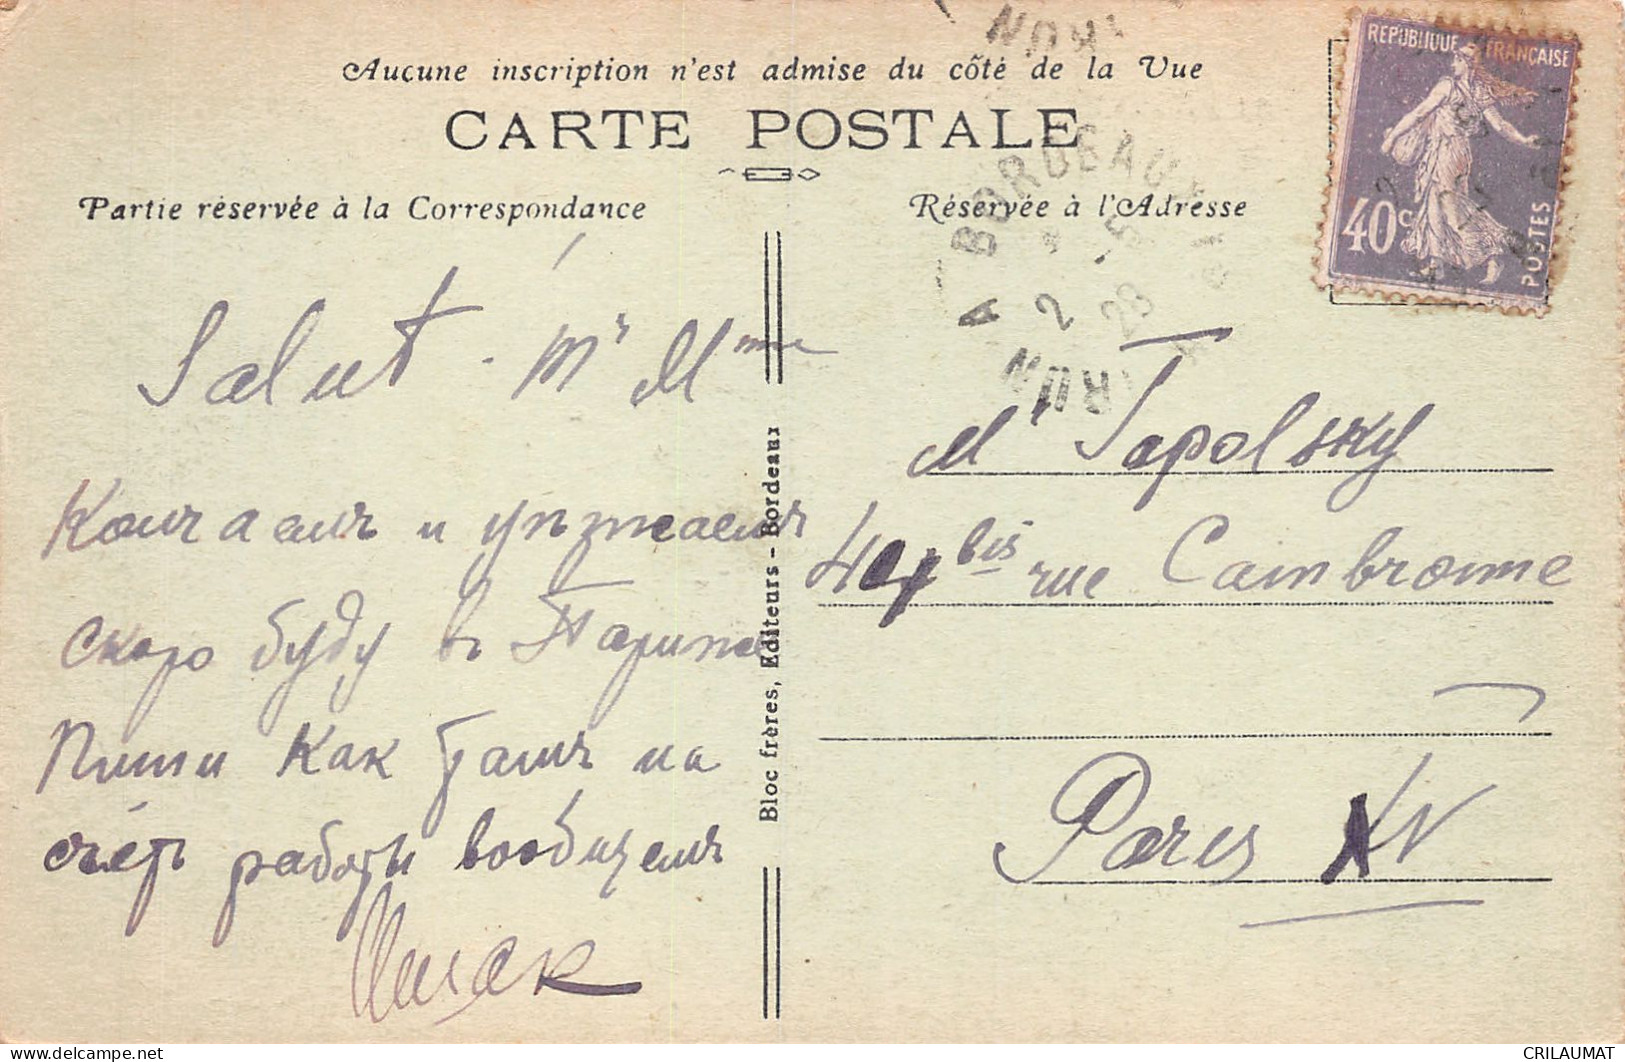 Aucune inscription n'est admise du côté de la Vue
CARTE POSTALE
Partie réservée à la Correspondance
Réservée à l'Adresse
REPUBLIQUE FRANÇAISE
40c
POSTES
A BORDEAUX
2 -5
28
Salut - Mr Mme
и
скоро буду въ Париже
Пиши как на
счёт работы вообще
Bloc frères, Editeurs - Bordeaux
Mr Tapolsky
bis rue Cambronne
Paris XV
CRILAUMAT
delcampe.net